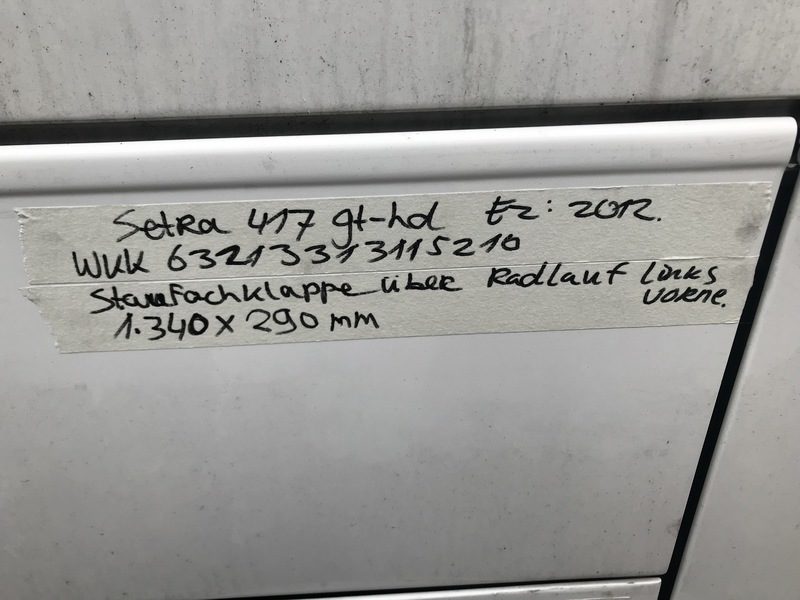 Setra 417 gt-hd Ez: 2012.
WKK 63213313115210
Staufachklappe über Radlauf links
vorne.
1.340 x 290 mm